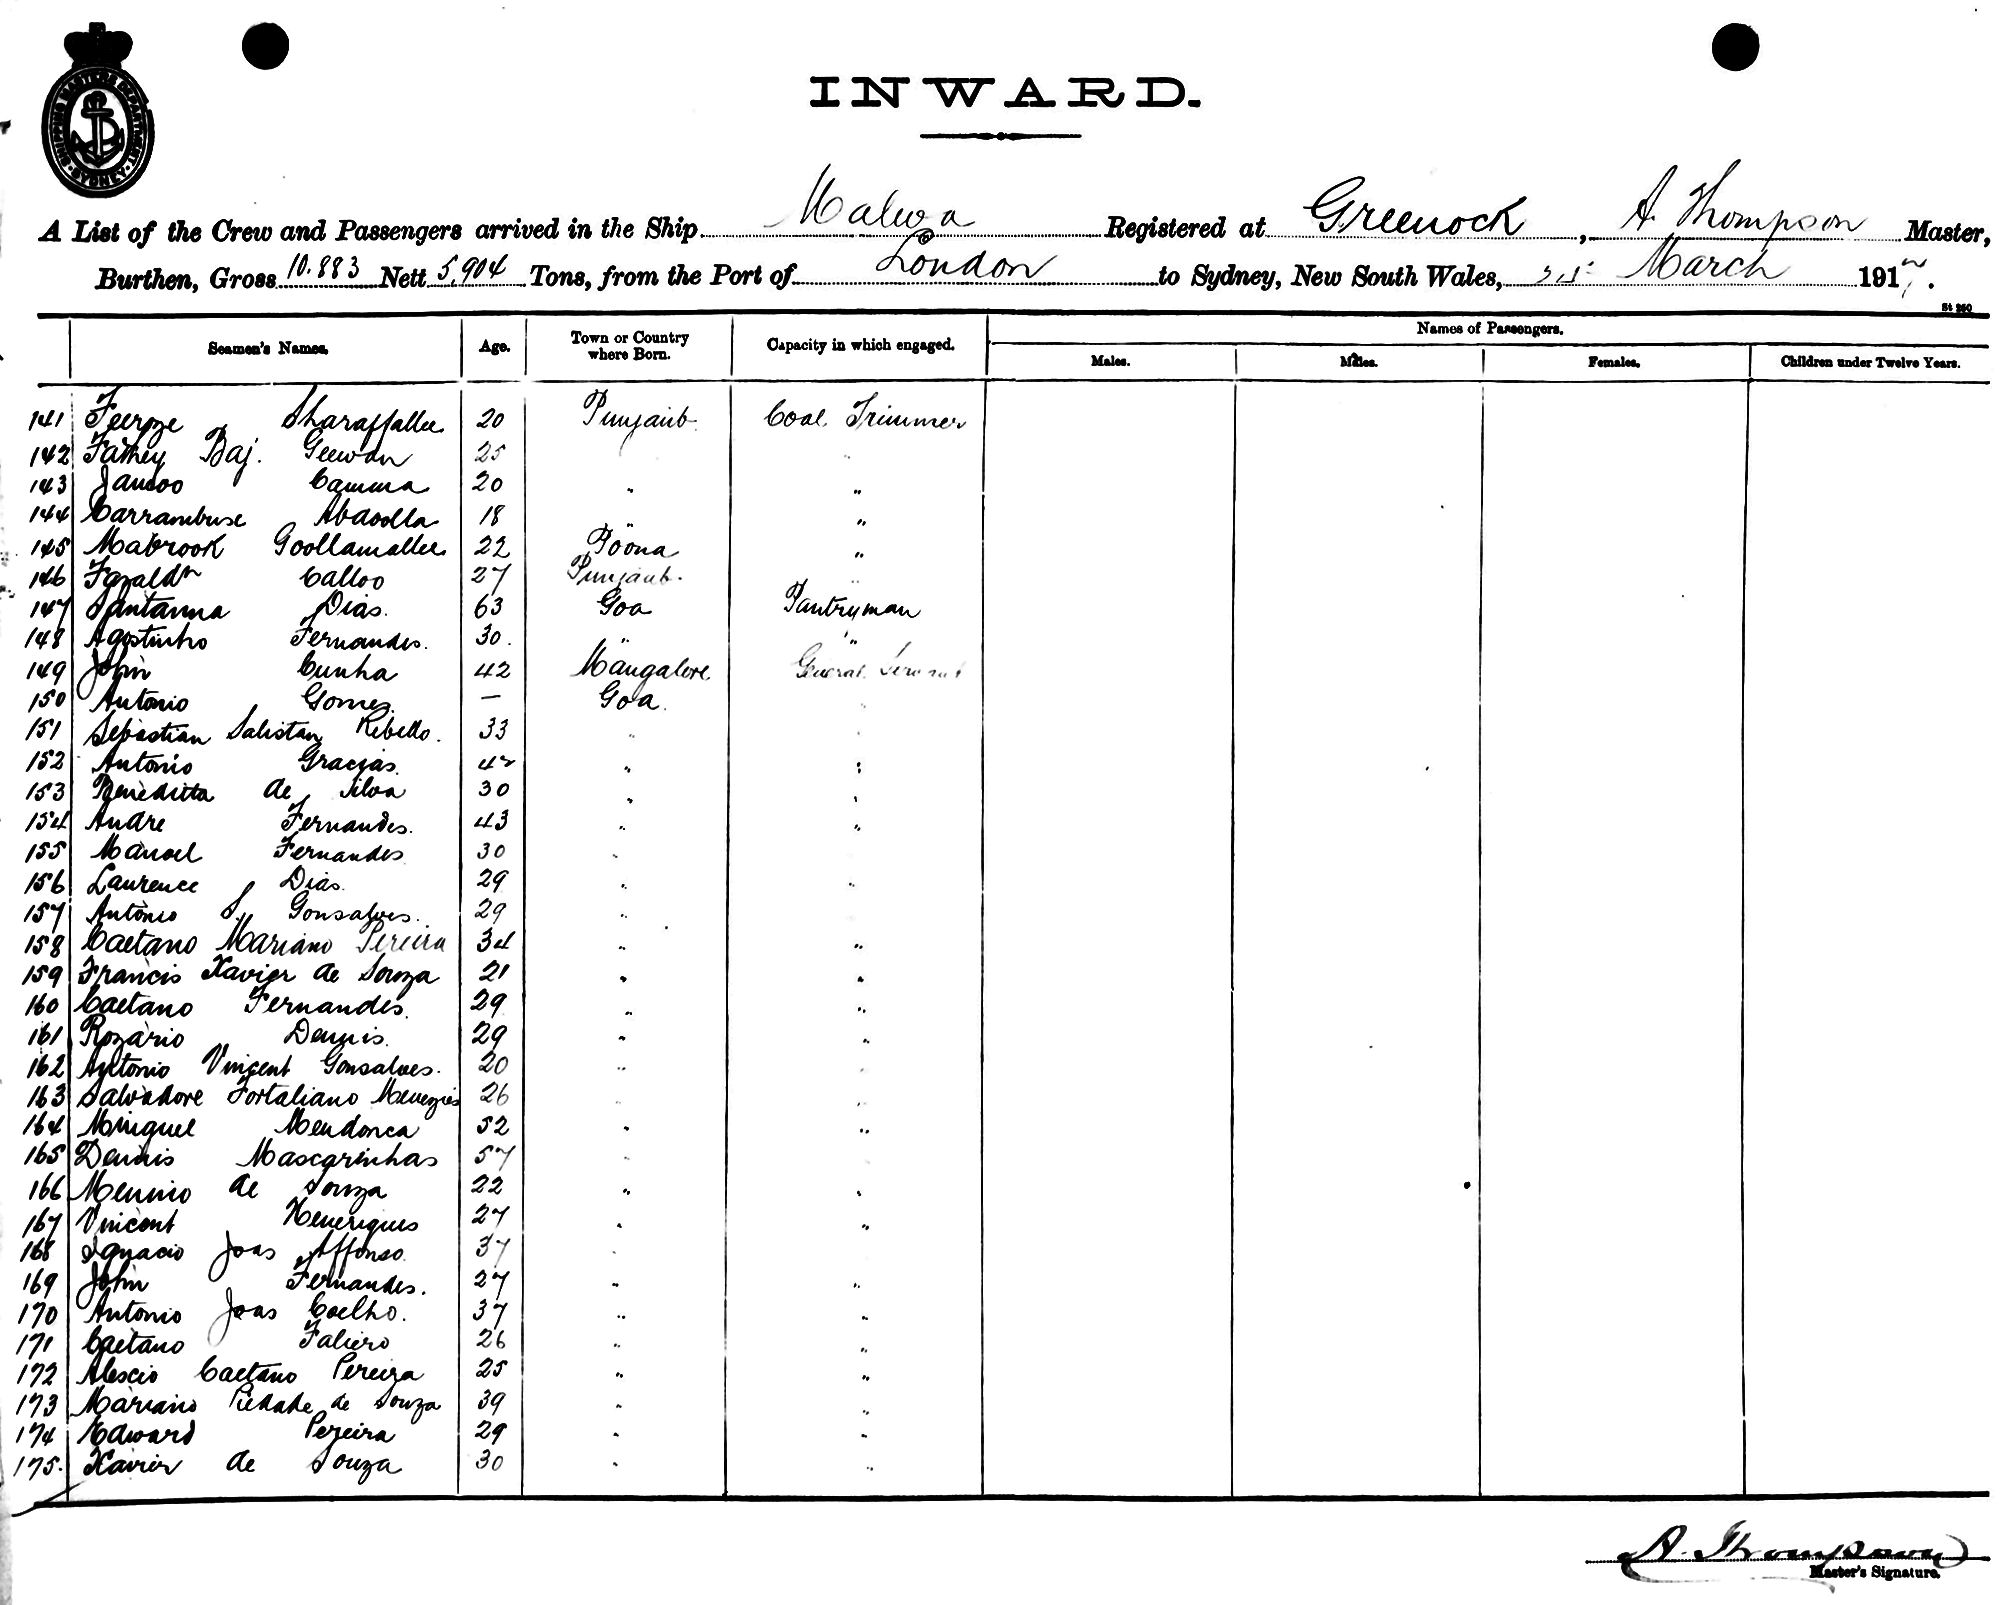 SHIPPING MASTERS DEPARTMENT SYDNEY
INWARD.
A List of the Crew and Passengers arrived in the Ship Malwa Registered at Greenock, A. Thompson Master,
Burthen, Gross 10.883 Nett 5,904 Tons, from the Port of London to Sydney, New South Wales, March 191
St 250
Seamen's Names. Age. Town or Country where Born. Capacity in which engaged. Names of Passengers.
Males. Males. Females. Children under Twelve Years.
141 Feeroze Sharaffallee 20 Punjaub. Coal Trimmer
142 Baj. Geewan 25 "
143 Jandoo Camma 20 " "
144 Carrambuse Abdoolla 18 " "
145 Mabrook Goollamallee 22 Poona "
146 Fazaldn Calloo 27 Punjaub. "
147 Santanna Dias. 63 Goa Pantryman
148 Agostinho Fernandes. 30. " "
149 John Cunha 42 Mangalore General Servant
150 Antonio Gomes. — Goa. "
151 Sebastian Salistan Rebello. 33 " "
152 Antonio Gracias. 42 " "
153 Beneditta de Silva 30 " "
154 Andre Fernandes. 43 " "
155 Manoel Fernandes 30 "
156 Laurence Dias. 29 " "
157 Antonio S. Gonsalves. 29 "
158 Caetano Mariano Pereira 34 " "
159 Francis Xavier de Souza 21 " "
160 Caetano Fernandes. 29 " "
161 Rozario Dennis. 29 " "
162 Antonio Vincent Gonsalves. 20 " "
163 Salvadore Fortaliano Menezies 26 " "
164 Minguel Mendonca 52 " "
165 Dennis Mascarinhas 57 "
166 Menino de Souza 22 " "
167 Vincent Heneriques 27 " "
168 Ignacio Joas Affonso. 37 "
169 John Fernandes. 27 " "
170 Antonio Joas Coelho. 37 " "
171 Caetano Faliero 26 " "
172 Alescio Caetano Pereira 25 " "
173 Mariano Piedade de Souza 39 " "
174 Edward Pereira 29 " "
175. Xavier de Souza 30 " "
A. Thompson
Master's Signature.